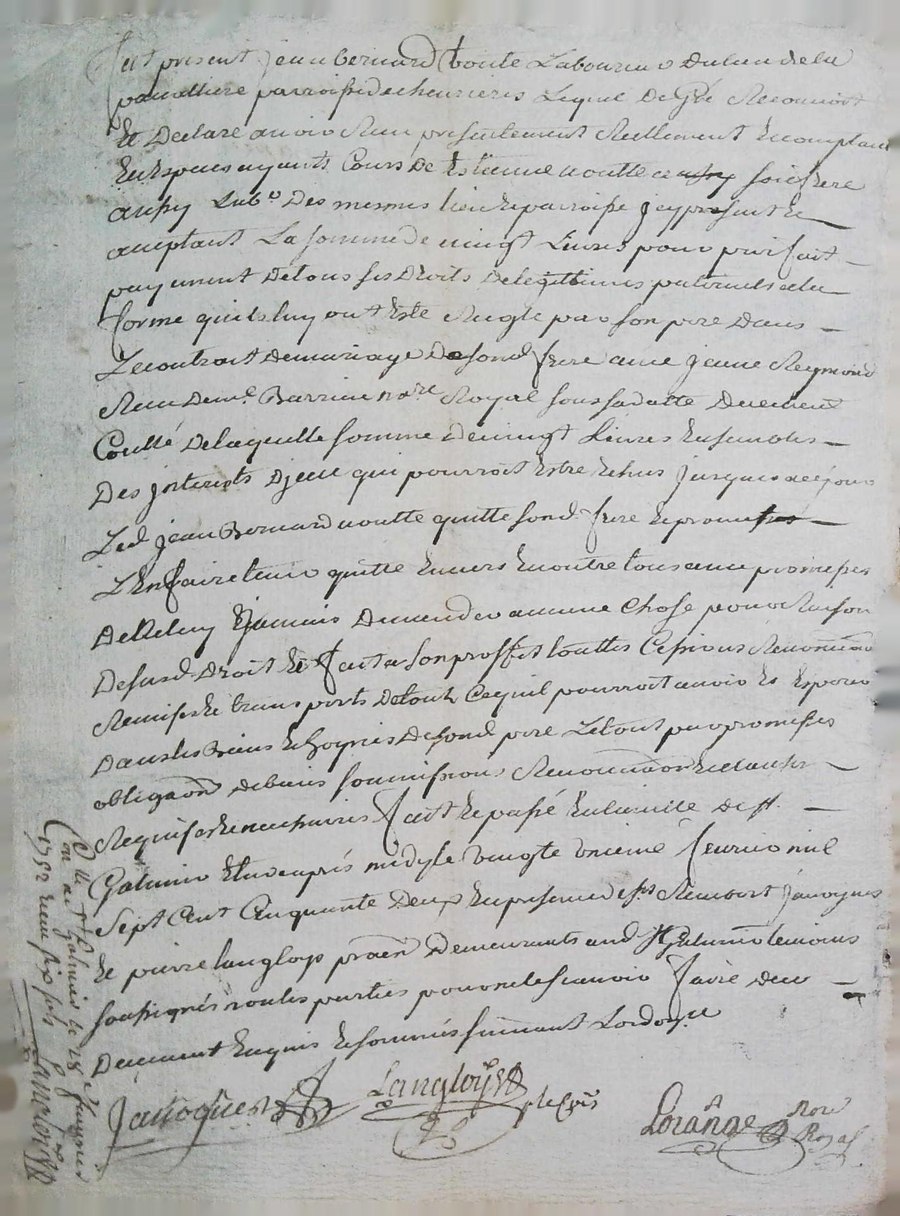 fut present jean bernard Laboureur du lieu de la
parroisse de chevrieres Lequel De gré Reconnoit
Et Declare avoir Receu presentement Reellement Et comptant
En Especes ayants Cours De Estienne voutte son frere
aussy Lab.r Des mesmes lieu Et parroisse jcy present Et
acceptant La somme de vingt Livres pour parfait
payement De tous ses Droits De legitimes paternels a la
forme quils luy ont Esté Reglé par son pere Dans
Le contrait De mariage De son d frere avec jeanne Reymond
Receu De me Barrieu nore Royal sous sa datte Deuement
De laquelle somme de vingt Livres Ensemble
Des jnterests Djcelle qui pourroit Estre Echus jusques a ce jour
Led jean Bernard voutte quitte sond frere Et promet
L'En faire tenir quitte Envers Et contre tous avec promesses
De ne luy Jamais Demander aucune Chose pour Raison
Desusd Droit Et fait a son proffit touttes Cessions Renonciaon
Remises Et transports De tout Ce quil pourroit avoir Et Esperer
Dans les Biens Et hoyries De sond pere Le tout par promesses
obligaon de biens soumissions Renonciaon Et clauses
Requises Et necessaires fait Et passé En la ville de St
Galmier Etude aprés midy le vingte unieme fevrier mil
Sept Cent Cinquante Deux En presence de srs Rembert Janoyues
Et pierre langloys praen Demeurants aud St Galmier temoins
soussignés non les parties pour ne le scavoir faire De ce
Deuement Enquis Et sommés suivant Lordonce
Janoyues Langloys Lorange Nore Royal
Clle a St Galmier le 28 fevrier
1752 receu six sols